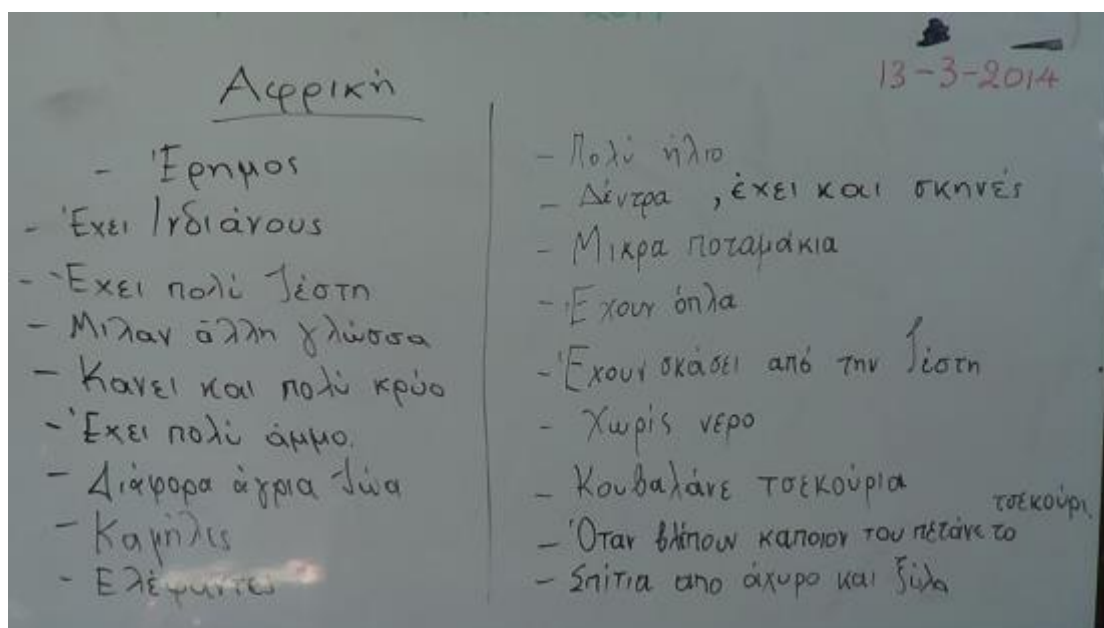 13-3-2014
Αφρική
- Έρημος
- Έχει Ινδιάνους
- Έχει πολύ ζέστη
- Μιλαν άλλη γλώσσα
- Κανει και πολύ κρύο
- Έχει πολύ άμμο.
- Διάφορα άγρια ζώα
- Καμήλες
- Ελέφαντες
- Πολύ ήλιο
- Δέντρα , έχει και σκηνές
- Μικρα ποταμάκια
- Έχουν όπλα
- Έχουν σκάσει από την ζέστη
- Χωρίς νερο
- Κουβαλάνε τσεκούρια
- Όταν βλέπουν καποιον του πετάνε το τσεκούρι
- Σπίτια απο άχυρο και ξύλα